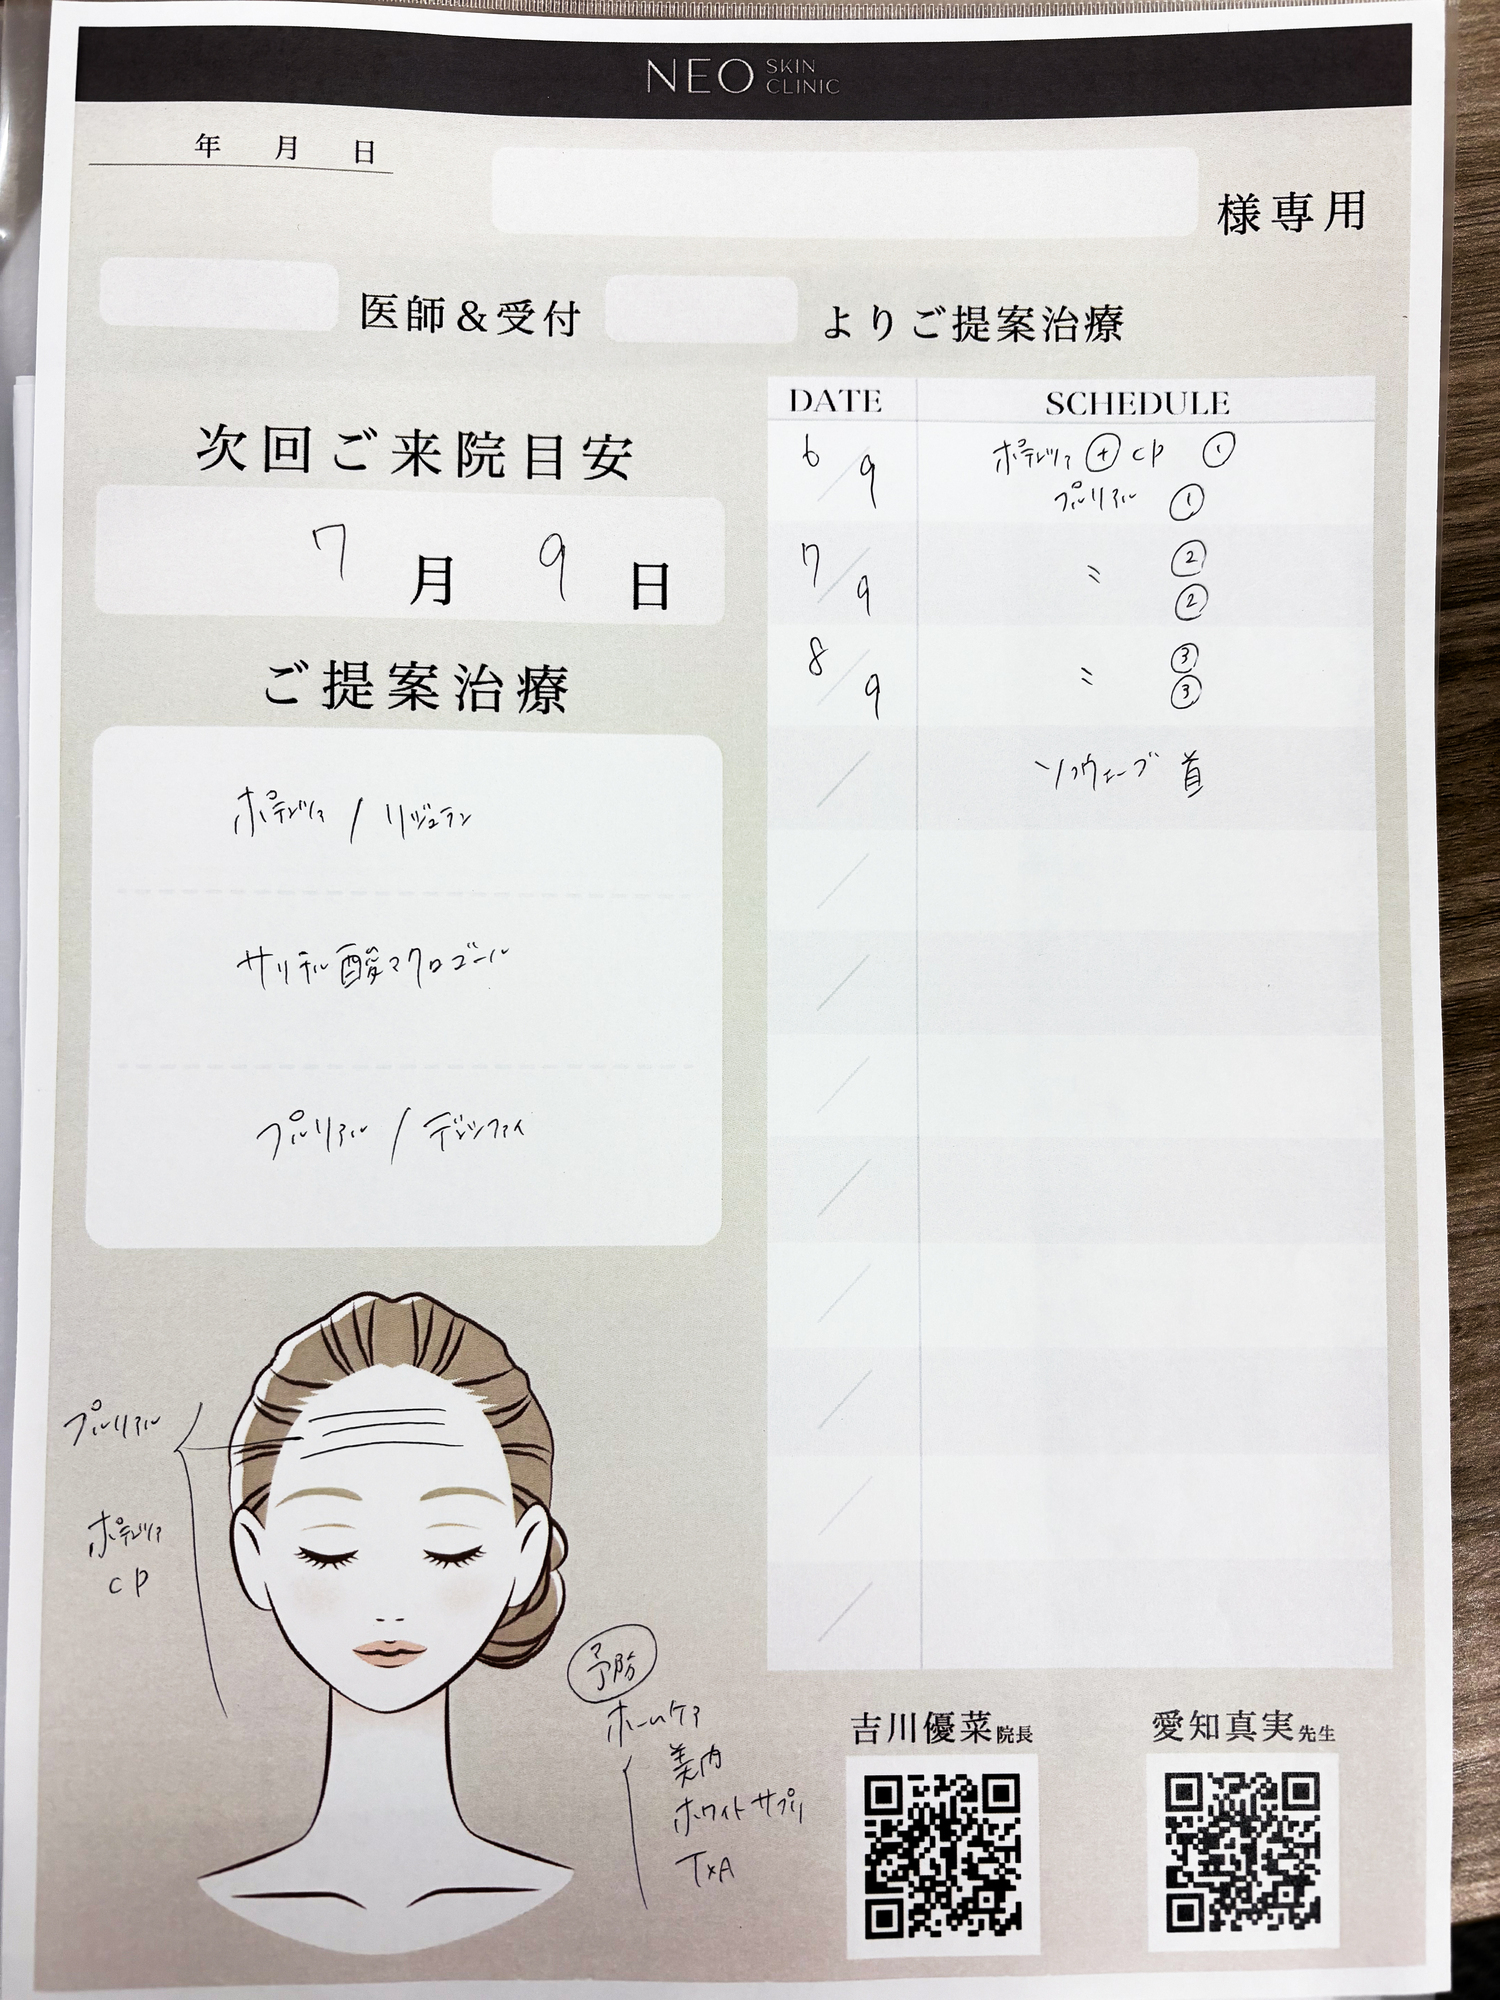 NEO SKIN CLINIC
年 月 日
様専用
医師&受付 よりご提案治療
次回ご来院目安
7月 9日
ご提案治療
ポテンツァ / リジュラン
サリチル酸マクロゴール
プルリアル / デンシファイ
DATE SCHEDULE
6/9 ポテンツァ ⊕ CP ①
プルリアル ①
7/9 〃 ②
②
8/9 〃 ③
③
/ ソフウェーブ 首
/
/
/
/
/
/
/
/
プルリアル
ポテンツァ
CP
予防
ホームケア
美内
ホワイトサプリ
TXA
吉川優菜院長
愛知真実先生